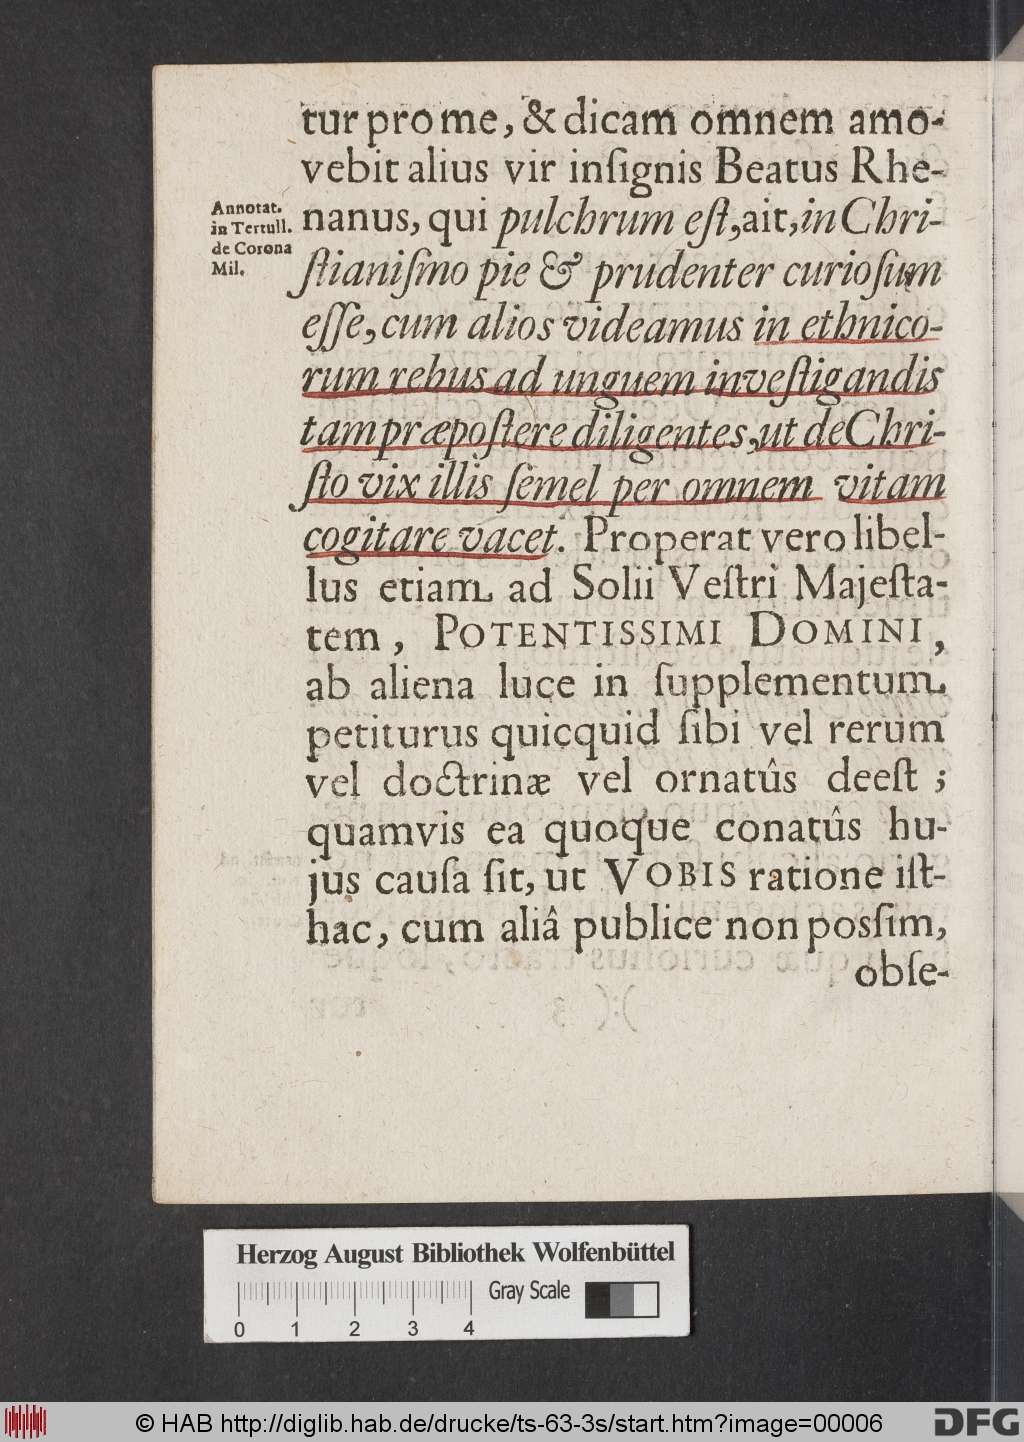 tur pro me, & dicam omnem amo-
vebit alius vir inſignis Beatus Rhe-
Annotat.
in Tertull.
de Corona
Mil.
nanus, qui pulchrum eſt, ait, in Chri-
ſtianiſmo pie & prudenter curioſum
eſſe, cum alios videamus in ethnico-
rum rebus ad unguem inveſtigandis
tam præpoſtere diligentes, ut de Chri-
ſto vix illis ſemel per omnem vitam
cogitare vacet. Properat vero libel-
lus etiam ad Solii Veſtri Majeſta-
tem, POTENTISSIMI DOMINI,
ab aliena luce in ſupplementum
petiturus quicquid ſibi vel rerum
vel doctrinæ vel ornatûs deeſt;
quamvis ea quoque conatûs hu-
jus cauſa ſit, ut VOBIS ratione iſt-
hac, cum aliâ publice non posſim,
obſe-
Herzog August Bibliothek Wolfenbüttel
Gray Scale
0 1 2 3 4
© HAB http://diglib.hab.de/drucke/ts-63-3s/start.htm?image=00006
DFG